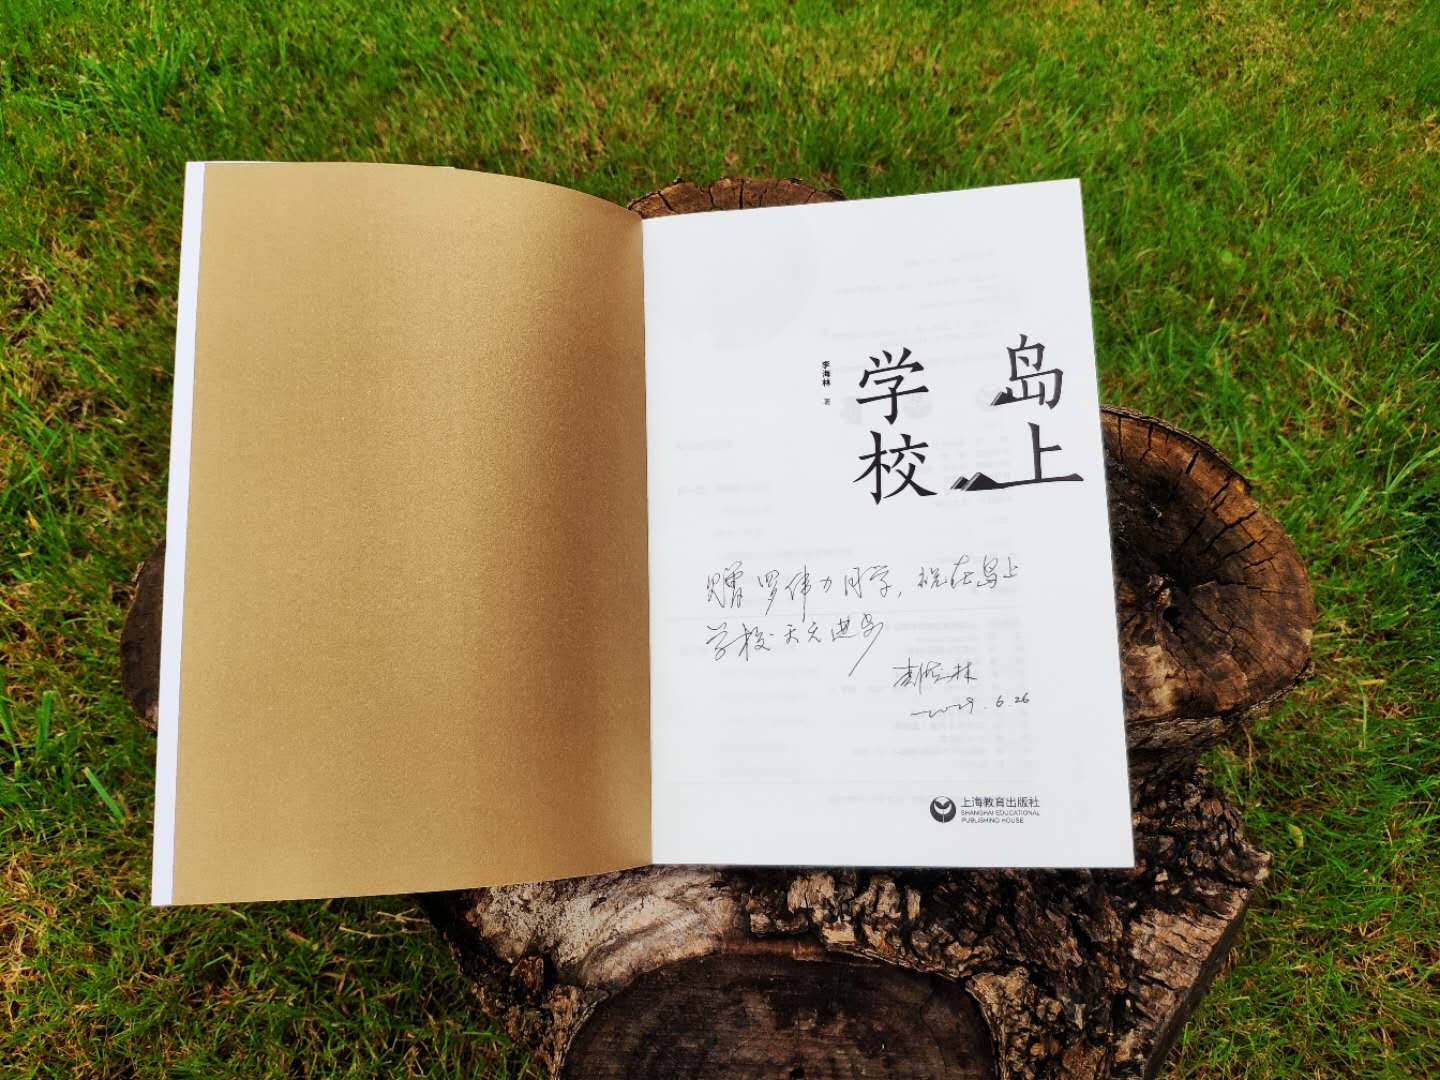 岛上
学校
李海林 著
赠罗伟力同学，祝在岛上
学校天天进步
李海林
6.26
上海教育出版社
SHANGHAI EDUCATIONAL
PUBLISHING HOUSE